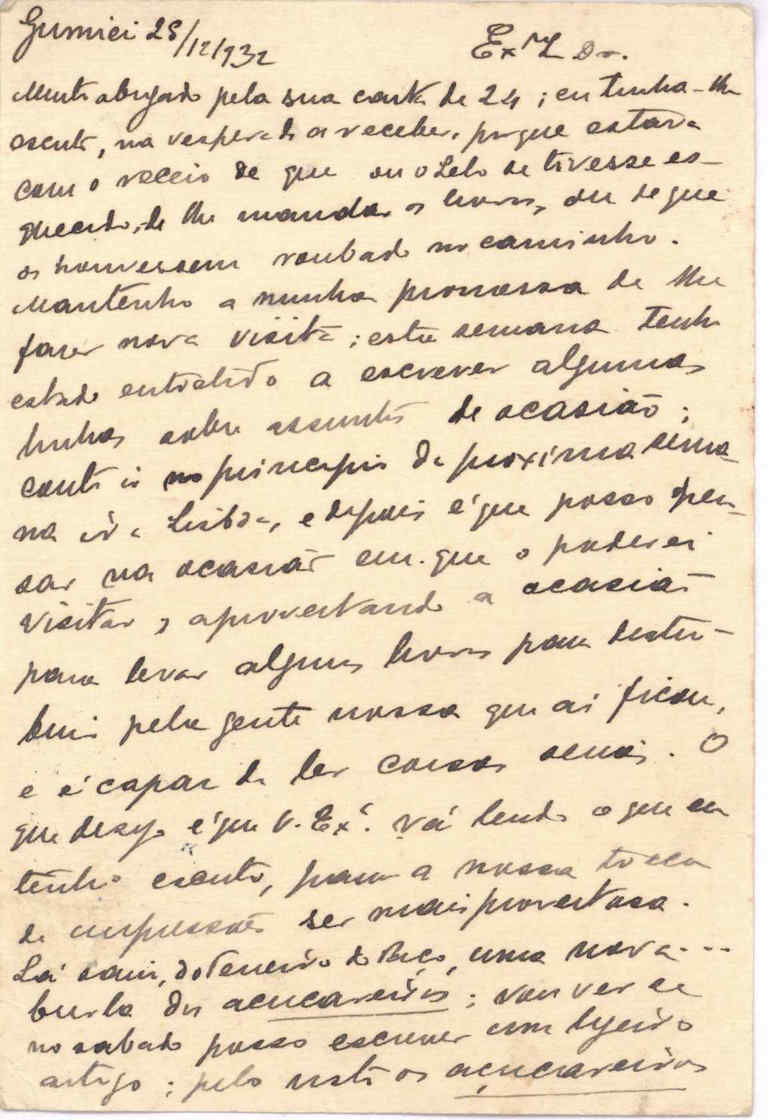 25/12/932
Exmo Dr.
Muito obrigado pela sua carta de 24; eu tinha-lhe
escrito, na vespera de a receber, porque estava
com o receio de que ou o Lelo se tivesse es-
quecido, de lhe mandar os livros, ou de que
os houvessem roubado no caminho.
Mantenho a minha promessa de lhe
fazer nova visita; esta semana tenho
estado entretido a escrever algumas
linhas sobre assuntos de ocasião;
conto ir no principio da proxima sema-
na ir a Lisboa, e depois é que posso pen-
sar na ocasião em que o poderei
visitar, aproveitando a ocasião
para levar alguns livros para distri-
buir pela gente nossa que ai ficou,
e é capaz de ler coisas serias. O
que desejo é que V. Exª. vá lendo o que eu
tenho escrito, para a nossa troca
de impressões ser mais proveitosa.
Lá saiu, do Terreiro do Paço, uma nova...
burla dos açucareiros; vou ver se
no sabado posso escrever um ligeiro
artigo; pelo visto os açucareiros